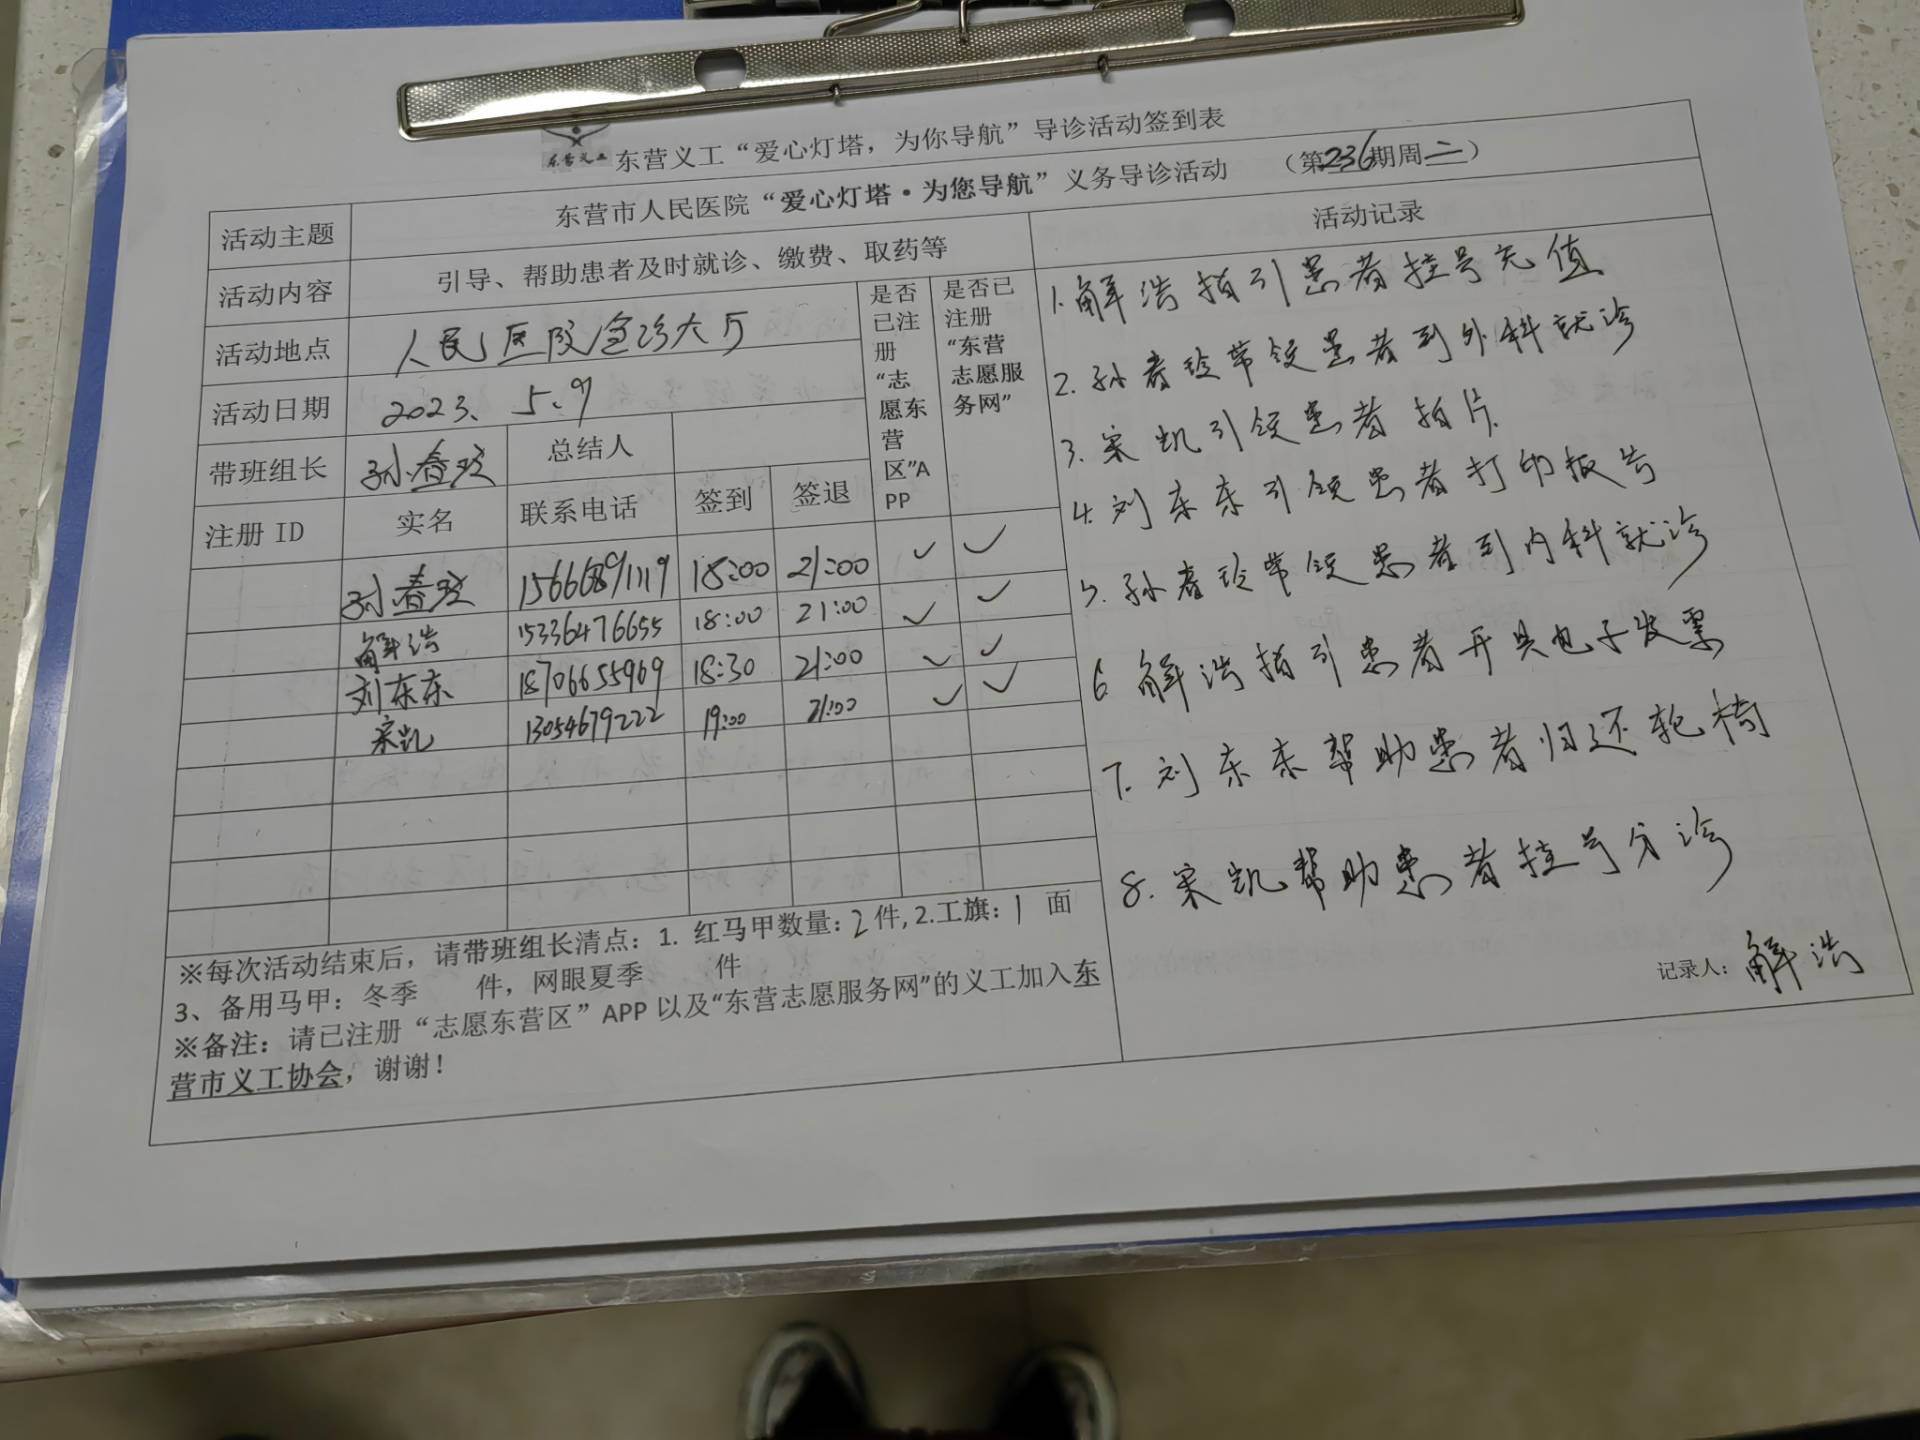 东营义工
东营义工“爱心灯塔，为你导航”导诊活动签到表
（第236期周二）
活动主题
东营市人民医院“爱心灯塔·为您导航”义务导诊活动
活动内容
引导、帮助患者及时就诊、缴费、取药等
活动地点
人民医院急诊大厅
活动日期
2023. 5.9
带班组长
孙春玲
总结人
注册 ID
实名
联系电话
签到
签退
是否
已注
册
“志
愿东
营
区”A
PP
是否已
注册
“东营
志愿服
务网”
孙春玲 15666891119 18:00 21:00 ✓ ✓
解浩 15336476655 18:00 21:00 ✓ ✓
刘东东 18706655969 18:30 21:00 ✓ ✓
宋凯 13054679222 19:00 21:00 ✓ ✓
※每次活动结束后，请带班组长清点：1. 红马甲数量：2件, 2.工旗：1 面
3、备用马甲：冬季 件，网眼夏季 件
※备注：请已注册“志愿东营区”APP 以及“东营志愿服务网”的义工加入东
营市义工协会，谢谢！
活动记录
1.解浩指引患者挂号充值
2.孙春玲带领患者到外科就诊
3.宋凯引领患者拍片.
4.刘东东引领患者打印报告
5.孙春玲带领患者到内科就诊
6 解浩指引患者开具电子发票
7.刘东东帮助患者归还轮椅
8.宋凯帮助患者挂号分诊
记录人：解浩